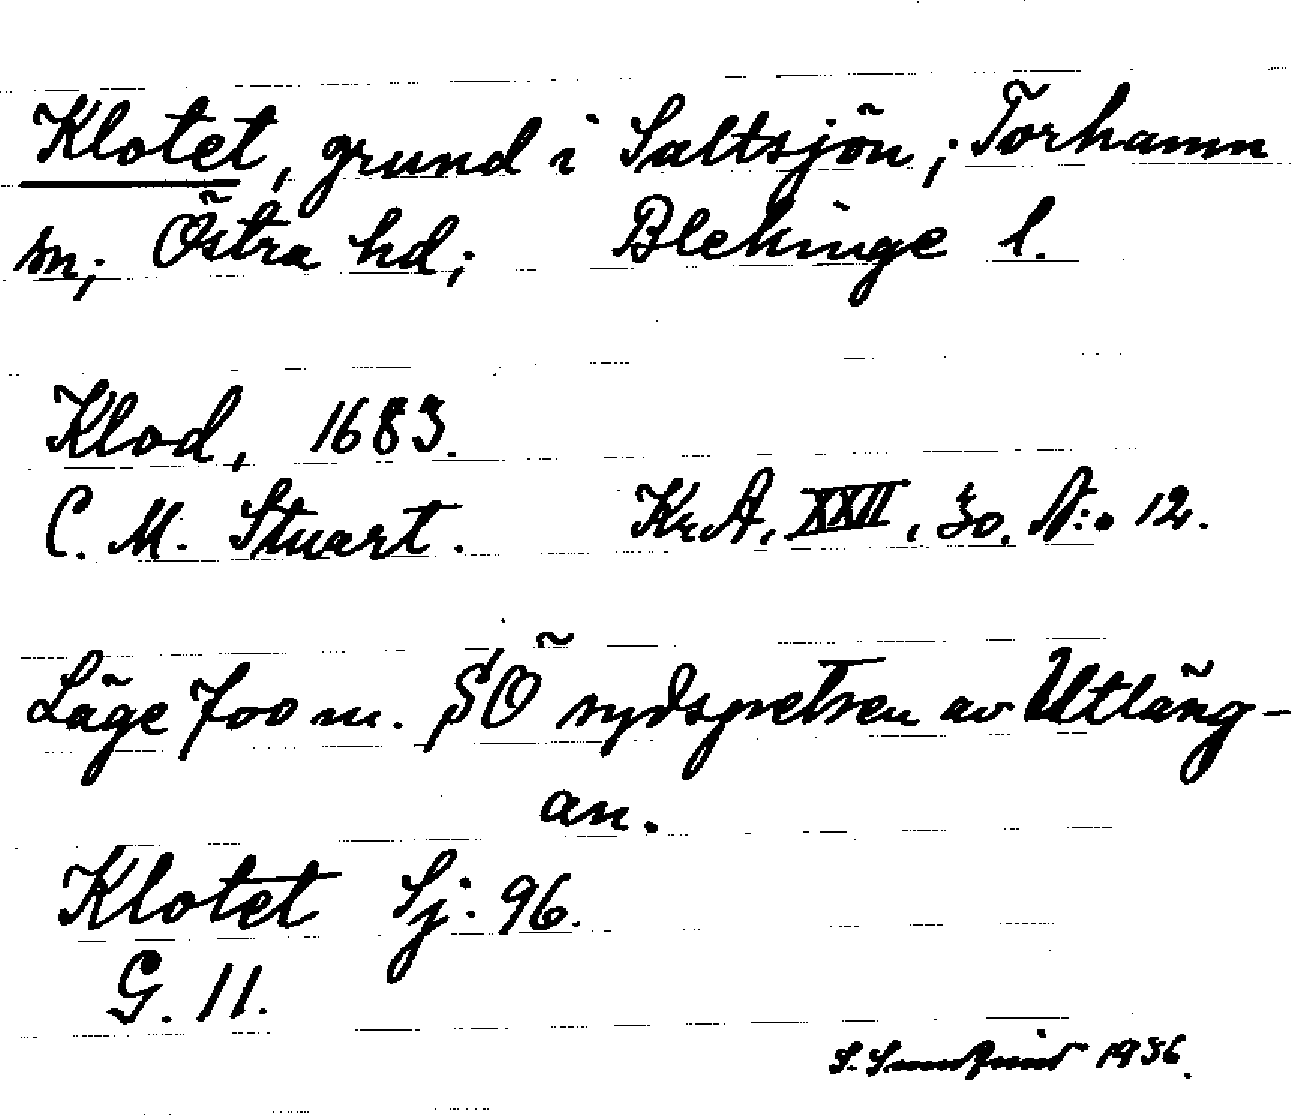 Klotet, grund i Saltsjön; Torhamn
sn; Östra hd; Blekinge l.
Klod, 1683.
C. M. Stuart. Kr.A. XXII, 30. N:o 12.
Läge 700 m. SÖ sydspetsen av Utläng-
an.
Klotet Sj. 96.
G. 11.
S. 1936.